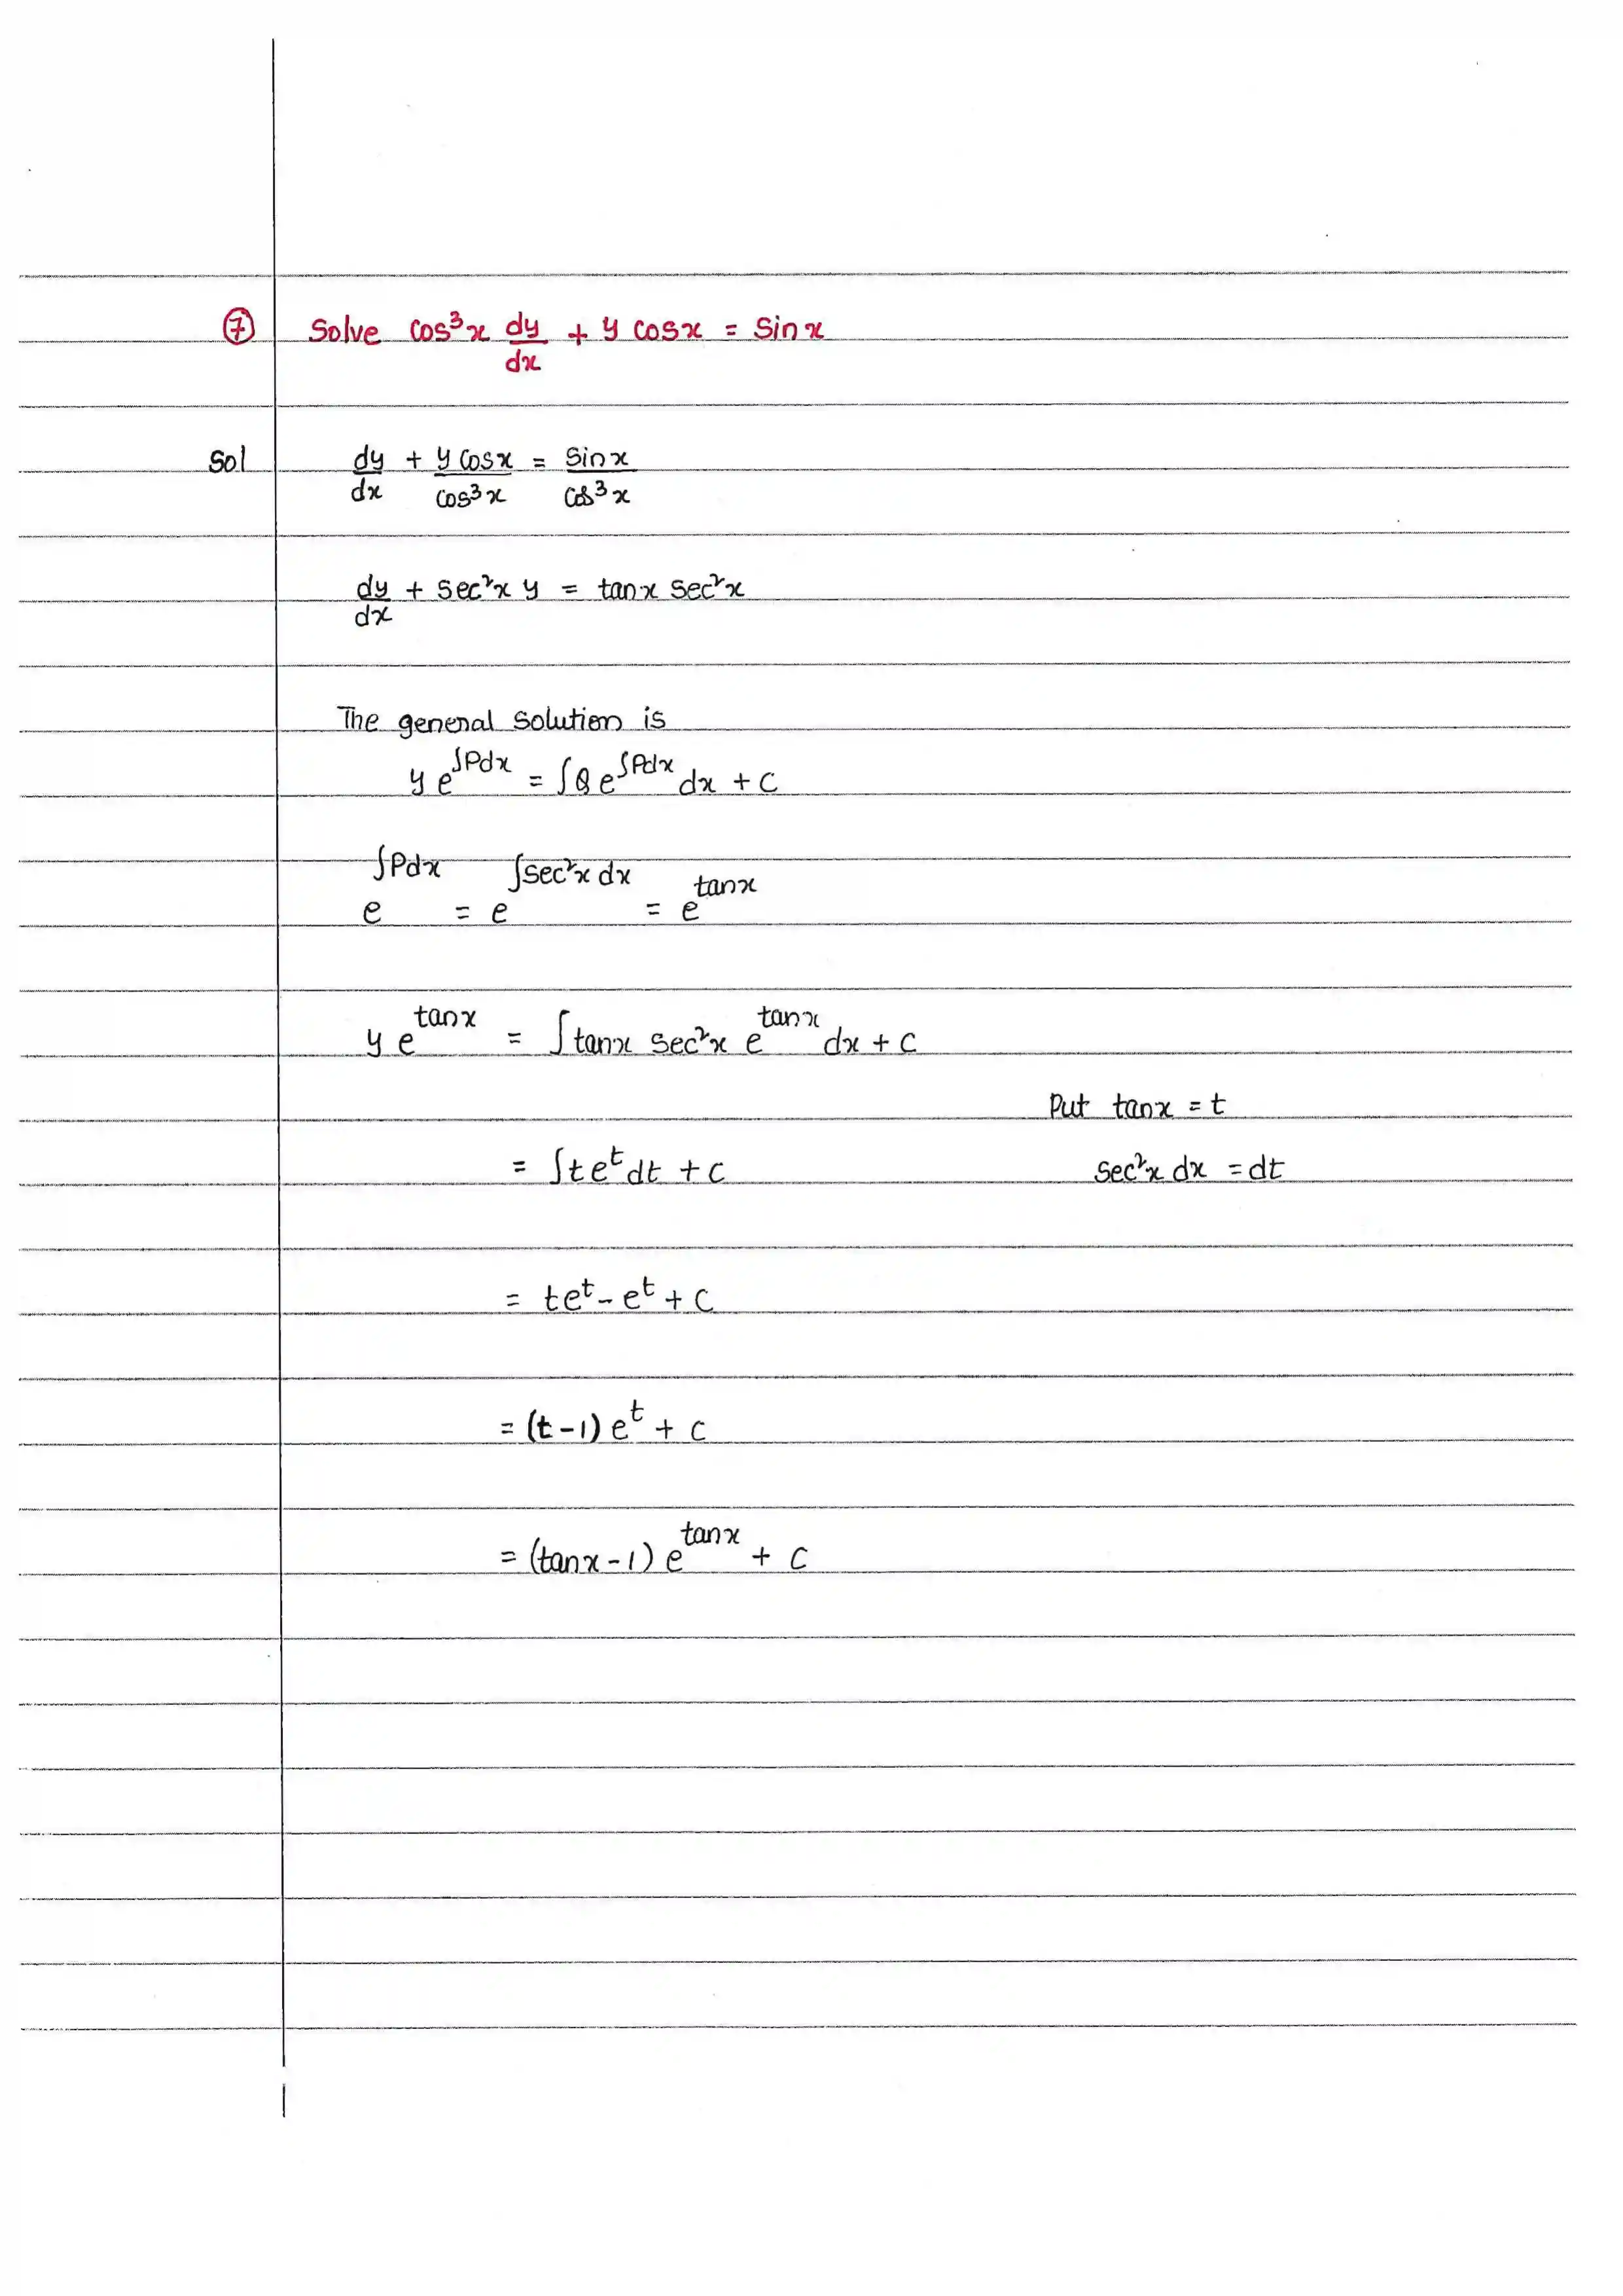 ⑦ Solve cos³x dy/dx + y cosx = Sinx
Sol dy/dx + y cosx/cos³x = Sinx/cos³x
dy/dx + Sec²x y = tanx Sec²x
The general solution is
y e^∫Pdx = ∫Q e^∫Pdx dx + c
e^∫Pdx = e^∫sec²x dx = e^tanx
y e^tanx = ∫tanx sec²x e^tanx dx + c
Put tanx = t
= ∫te^t dt + c sec²x dx = dt
= te^t - e^t + c
= (t-1) e^t + c
= (tanx-1) e^tanx + c